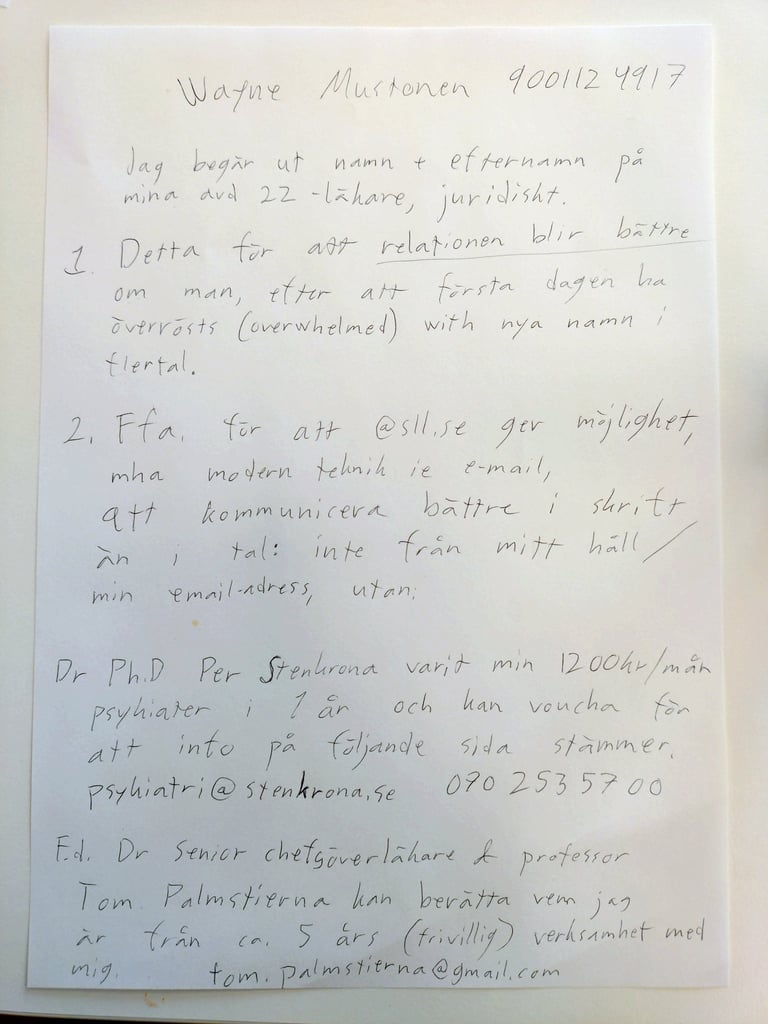 Wayne Mustonen 900112 4917
Jag begär ut namn + efternamn på
mina avd 22 -läkare, juridiskt.
1. Detta för att relationen blir bättre
om man, efter att första dagen ha
överrösts (overwhelmed) with nya namn i
flertal.
2. Ffa. för att @sll.se ger möjlighet,
mha modern teknik ie e-mail,
att kommunicera bättre i skrift
än i tal: inte från mitt håll /
min email-adress, utan:
Dr Ph.D Per Stenkrona varit min 1200kr/mån
psykiater i 1 år och kan voucha för
att info på följande sida stämmer.
psykiatri@stenkrona.se 070 253 57 00
F.d. Dr Senior chefsöverläkare & professor
Tom Palmstierna kan berätta vem jag
är från ca. 5 års (frivillig) verksamhet med
mig. tom.palmstierna@gmail.com